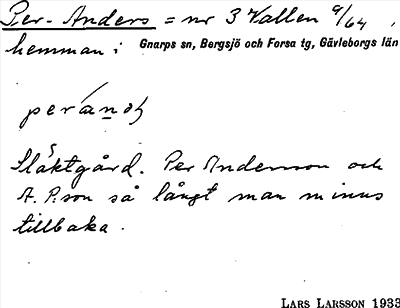 Per-Anders = nr 3 Vallen 9/64,
hemman i Gnarps sn, Bergsjö och Forsa tg, Gävleborgs län
Släktgård. Per Andersson och
A. P.son så långt man minns
tillbaka.
LARS LARSSON 1933